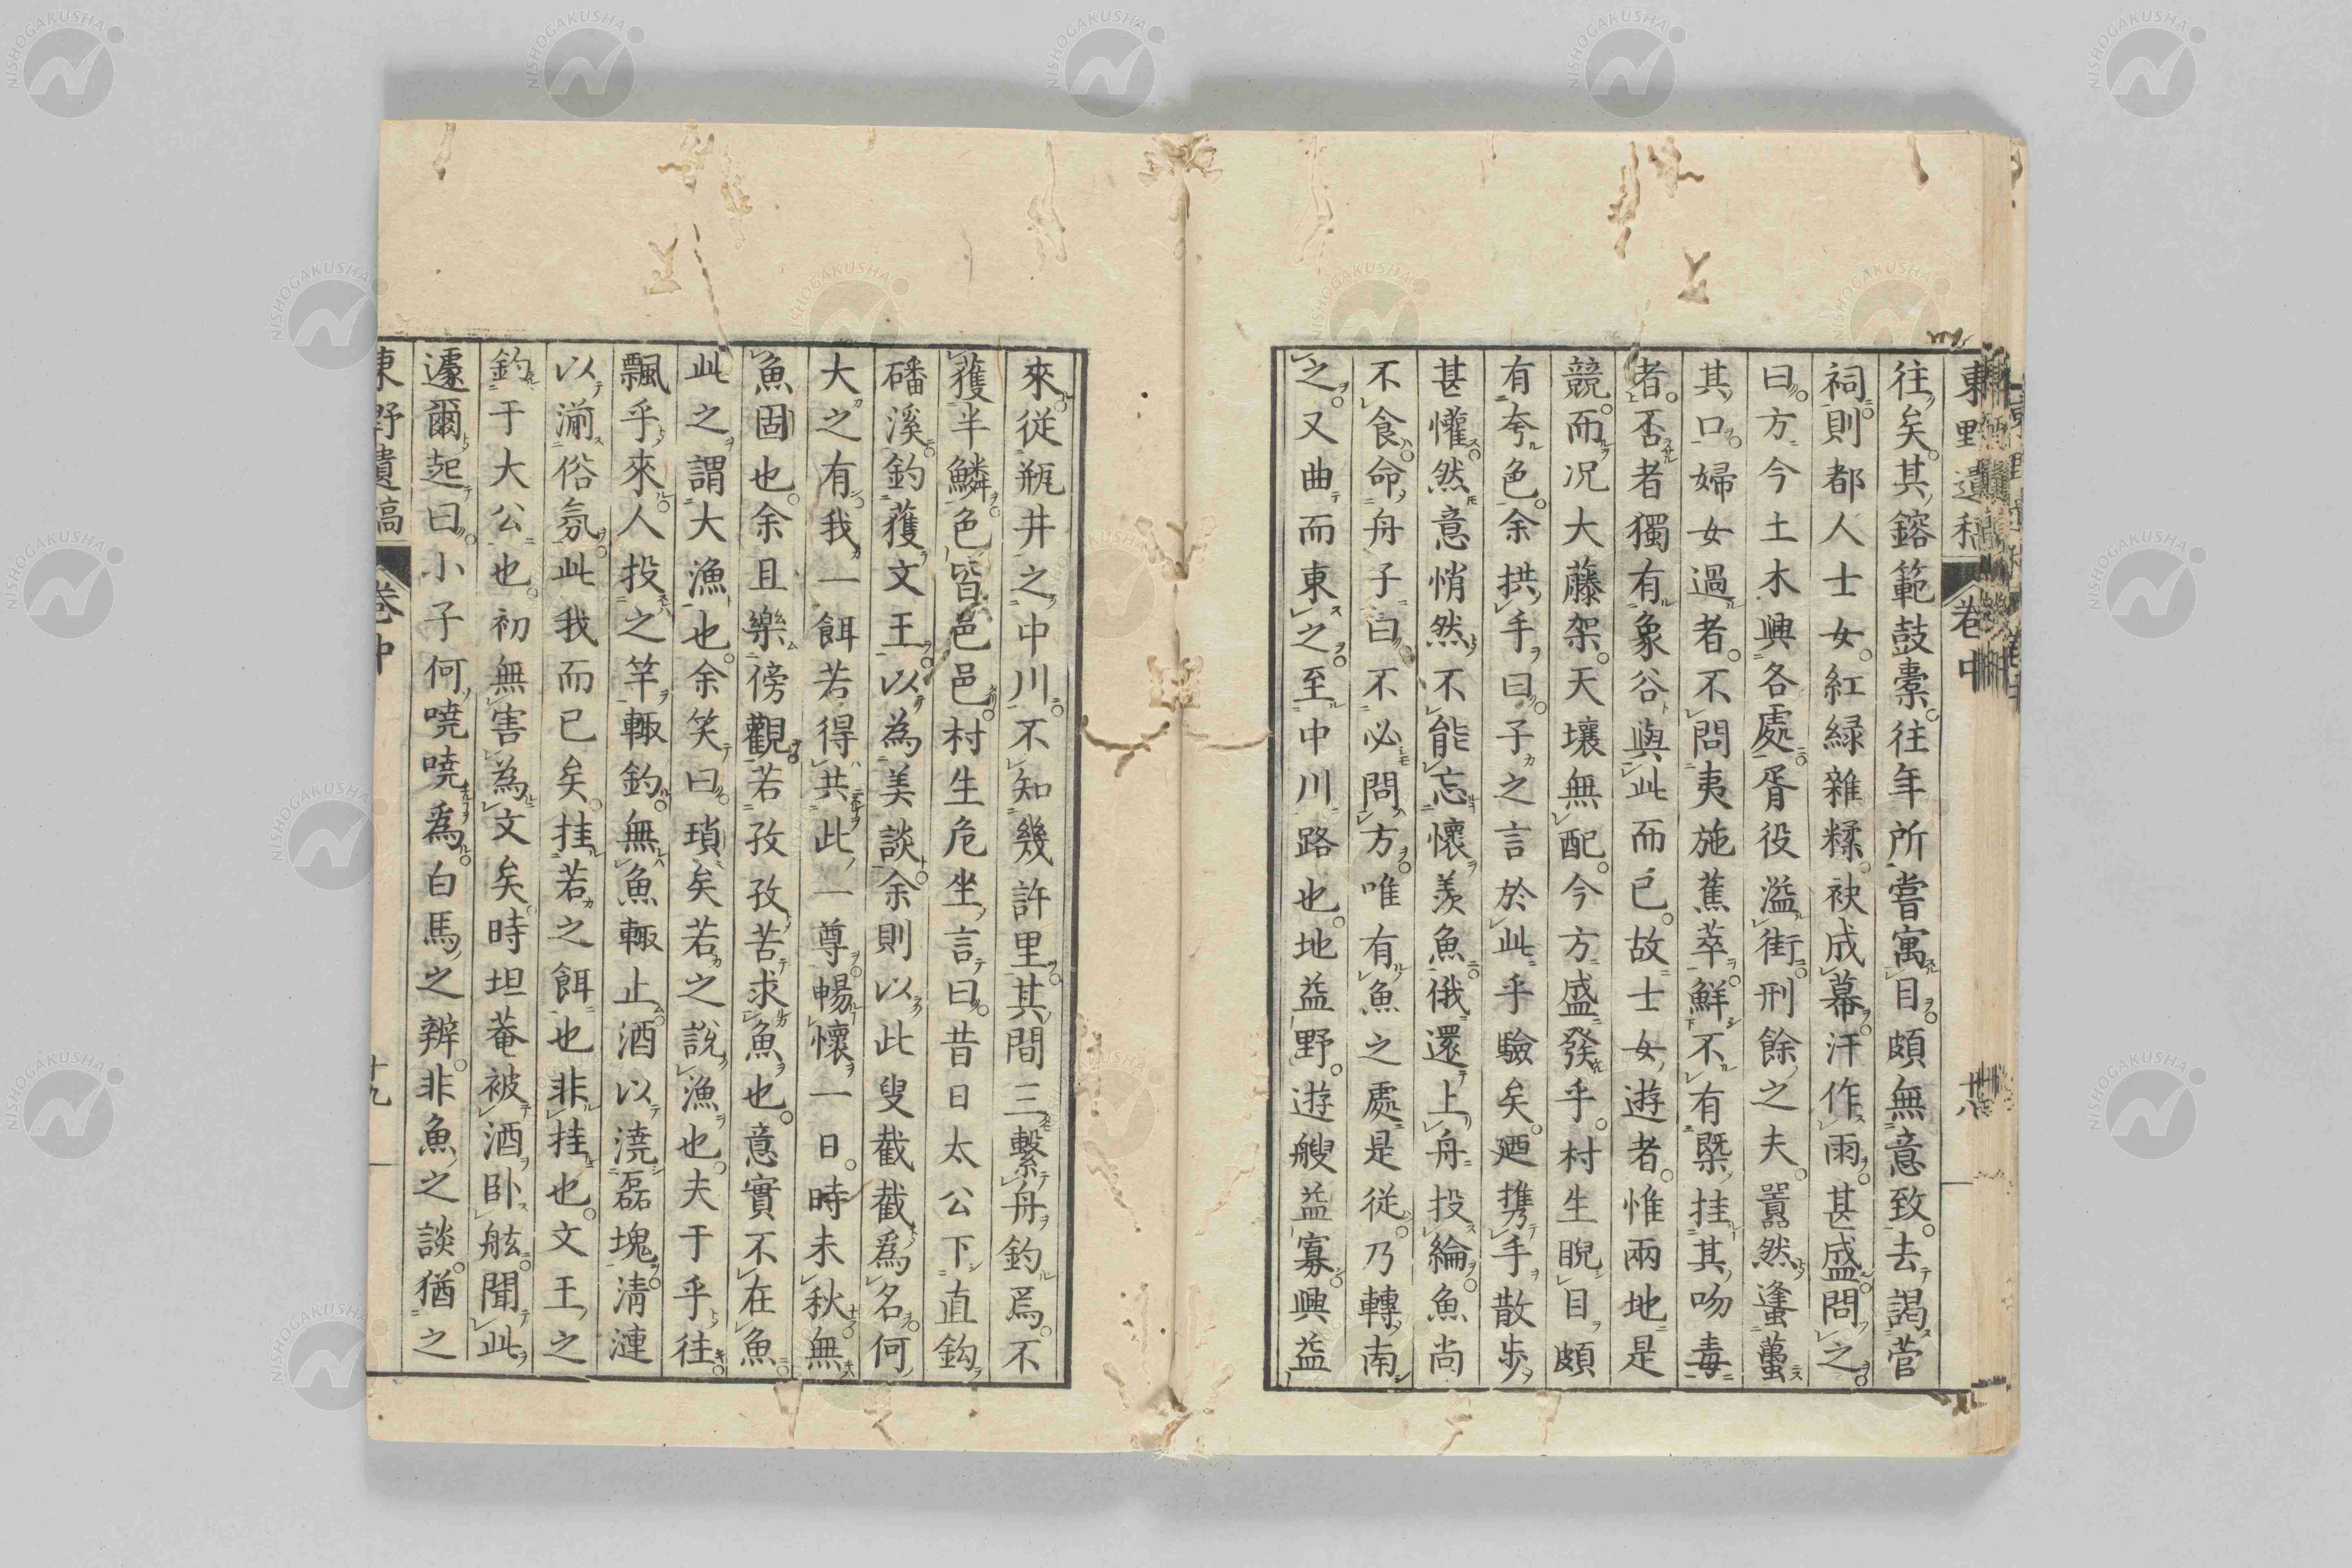 東野遺稿 卷中 十八
往矣其鎔範鼓橐往年所嘗寓目頗無意致去謁菅
祠則都人士女紅緑雜糅袂成幕汗作雨甚盛問之
曰方今土木興各處胥役溢街刑餘之夫囂然逢蠆
其口婦女過者不問夷施蕉萃鮮不有槩挂其吻毒
者否者獨有象谷與此而已故士女遊者惟兩地是
競而况大藤架天壤無配今方盛發乎村生睨目頗
有夸色余拱手曰子之言於此乎驗矣廼携手散歩
甚懽然意悄然不能忘懷羨魚俄還上舟投綸魚尚
不食命舟子曰不必問方唯有魚之處是従乃轉南
之又曲而東之至中川路也地益野遊艘益寡興益
來従瓶井之中川不知幾許里其間三繫舟釣焉不
獲半鱗色皆邑邑村生危坐言曰昔日太公下直鈎
磻溪釣獲文王以為美談余則以此叟截截爲名何
大之有我一餌若得共此一尊暢懷一日時未秋無
魚固也余且樂傍觀若孜孜苦求魚也意實不在魚
此之謂大漁也余笑曰瑣矣若之說漁也夫于乎往
飄乎來人投之竿輙釣無魚輙止酒以澆磊塊清漣
以湔俗氛此我而已矣挂若之餌也非挂也文王之
釣于大公也初無害為文矣時坦菴被酒卧舷聞此
遽爾起曰小子何嘵嘵為白馬之辨非魚之談猶之
東野遺稿 卷中 十九
NISHOGAKUSHA